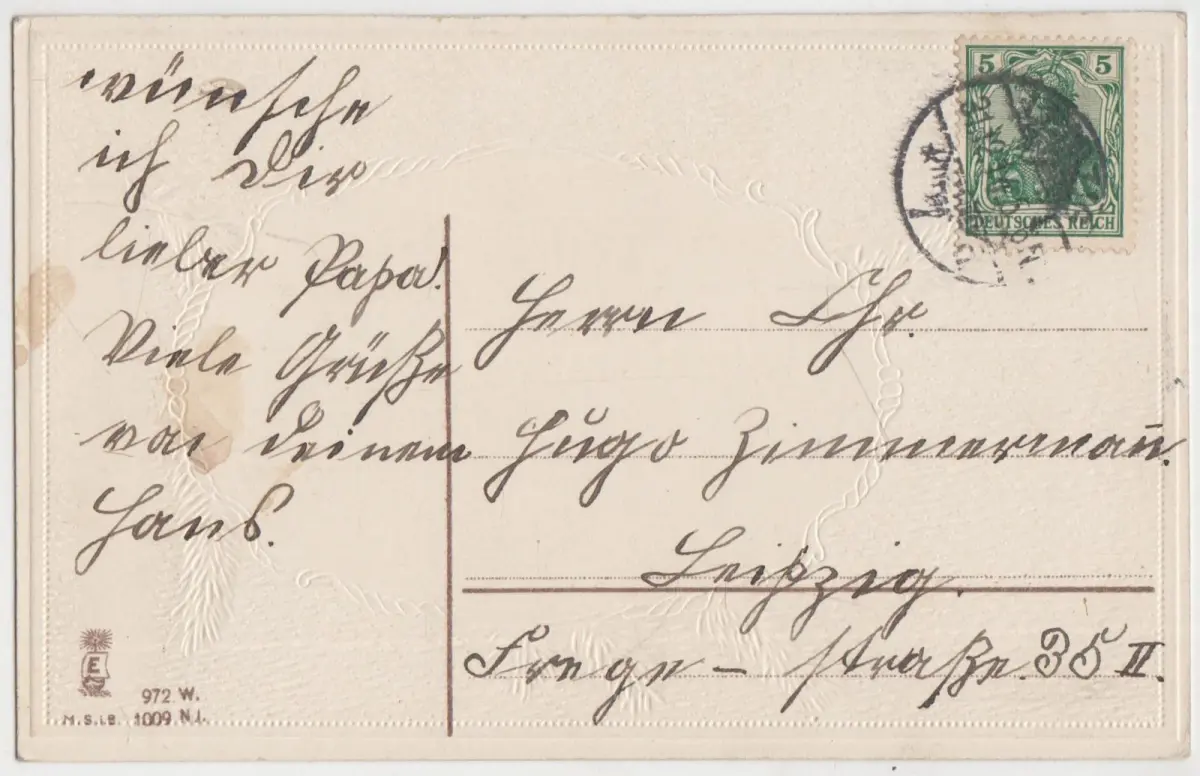 wünsche
ich Dir
lieber Papa!
Viele Grüße
von deinem
Hans.
5 5
DEUTSCHES REICH
Herrn Chr.
Hugo Zimmermañ.
Leipzig.
Frege - straße. 35 II.
E
972 W.
M.S.i.B. 1009 N.J.